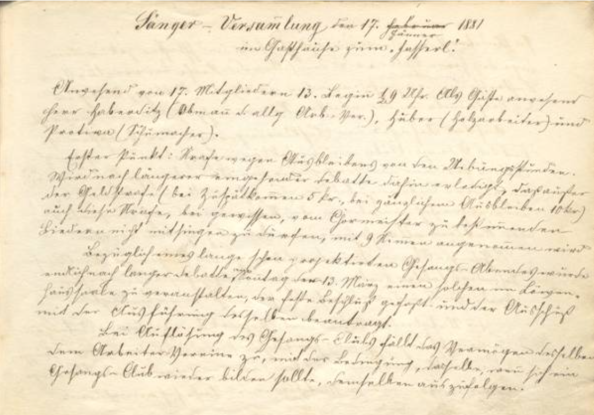 Sänger-Versammlung den 17. Februar 1881
Jänner
im Gasthause zum „Fasserl“.
Anwesend von 17. Mitgliedern 13. Begin ½9 Uhr. Als Gäste anwesend
Herr Haberditz (Obmann d. allg. Arb.-Ver.), Huber (Holzarbeiter) und
Protiwa (Schumacher).
Erster Punkt: Strafe wegen Ausbleibens von den Uebungsstunden.
Wird nach längerer eingehender Debatte dahin erledigt, daß außer
der Geldstrafe (bei Zuspätkommen 5 kr., bei gänzlichem Ausbleiben 10 kr)
auch diese Strafe, bei gewissen, vom Chormeister zu bestimmenden
Liedern nicht mitsingen zu dürfen, mit 9 Stimen angenomen wird
Bezüglich eines lange schon projektirten Gesangs-Abendes wurde
endlich nach langer Debatte Sontag den 13. März einen solchen im
zu veranstalten, der feste Beschluß gefaßt und der Ausschuß
mit der Ausführung desselben beantragt.
Bei Auflösung des Gesangs-Clubs fällt das Vermögen desselben
dem Arbeiter-Vereine zu, mit der Bedingung, dasselbe, wen sich ein
Gesangs-Club wieder bilden sollte, demselben auszufolgen.